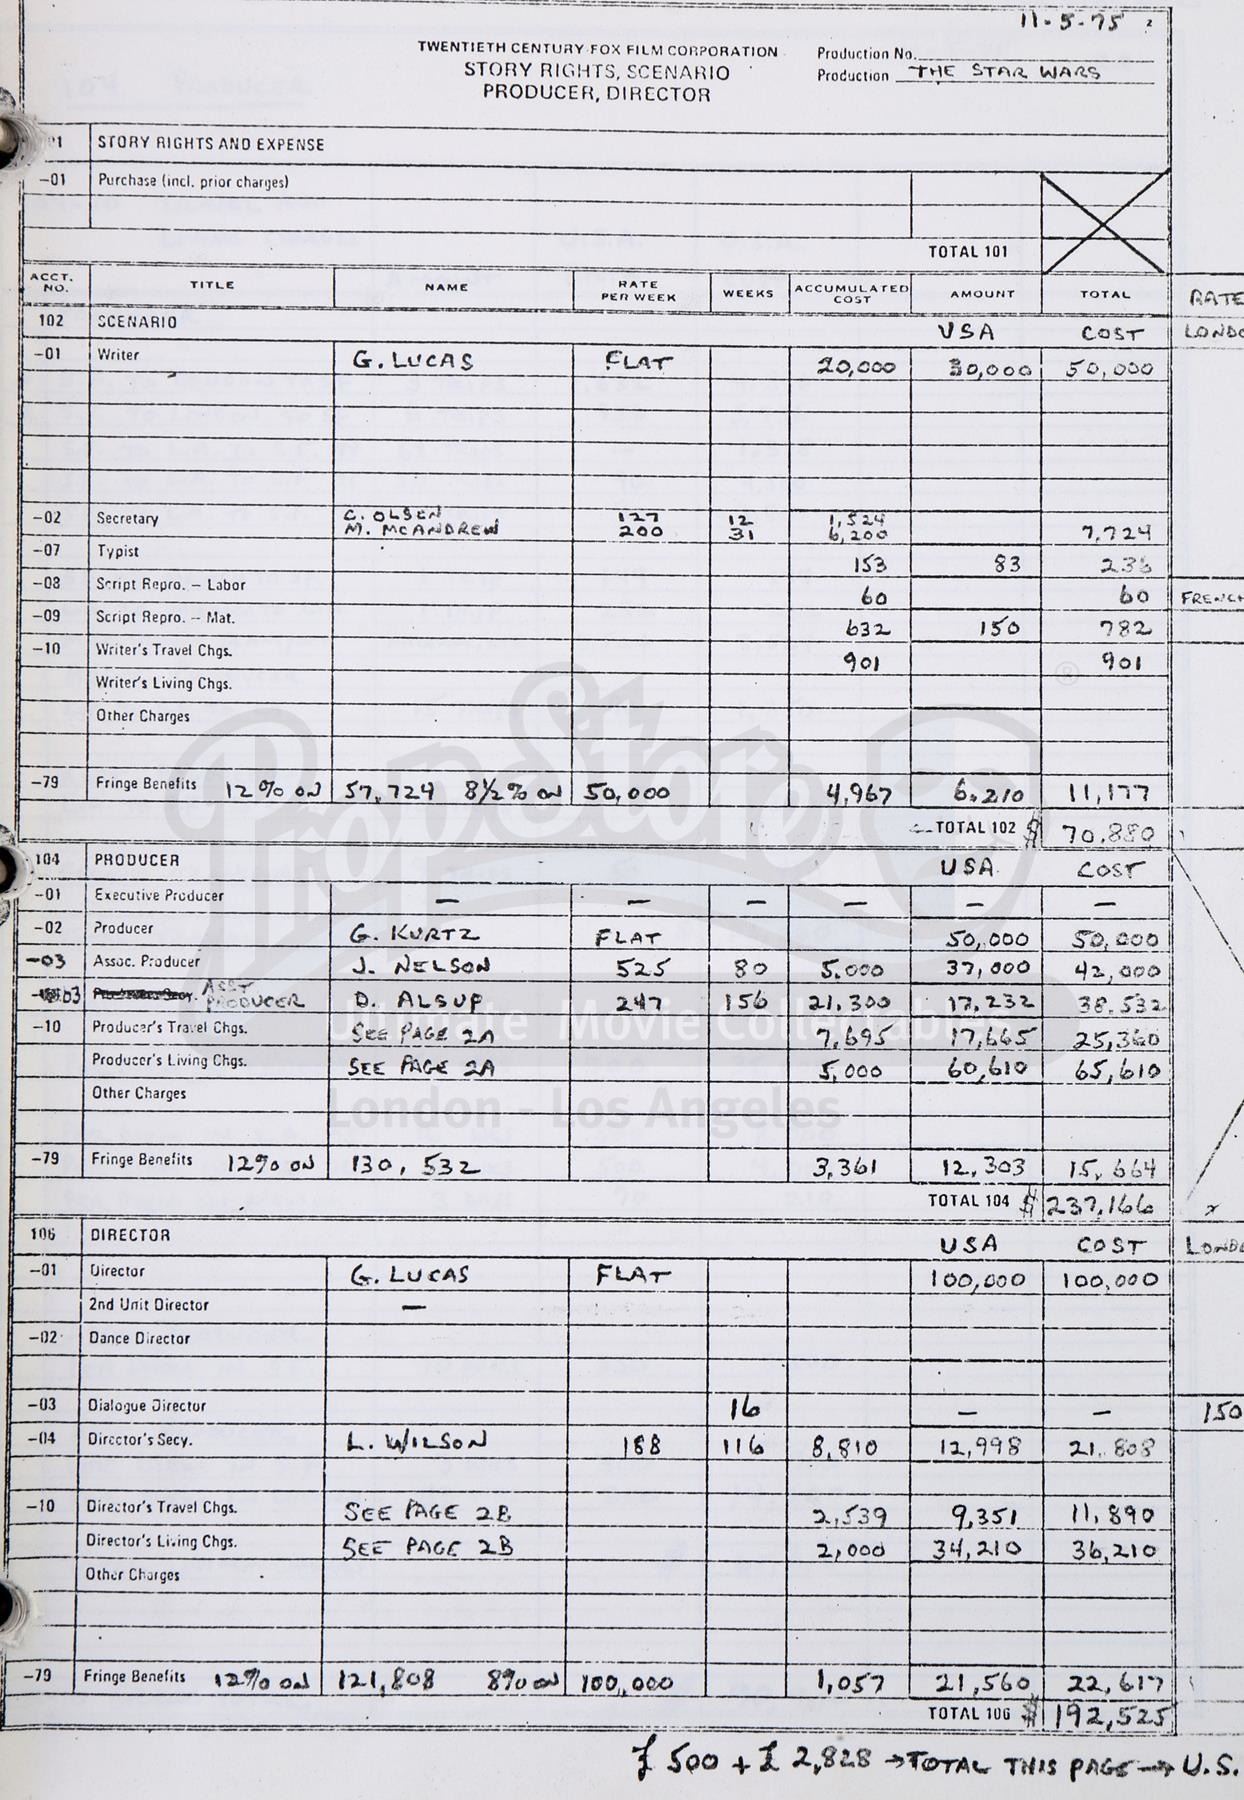 11-5-75 2
TWENTIETH CENTURY-FOX FILM CORPORATION Production No.
STORY RIGHTS, SCENARIO Production THE STAR WARS
PRODUCER, DIRECTOR
STORY RIGHTS AND EXPENSE
-01 Purchase (incl. prior charges)
TOTAL 101
ACCT. NO. TITLE NAME RATE PER WEEK WEEKS ACCUMULATED COST AMOUNT TOTAL RATE
102 SCENARIO USA COST
-01 Writer G. LUCAS FLAT 20,000 30,000 50,000
-02 Secretary C. OLSEN 127 12 1,524
M. MCANDREW 200 31 6,200 7,724
-07 Typist 153 83 236
-08 Script Repro. - Labor 60 60 FRENCH
-09 Script Repro. - Mat. 632 150 782
-10 Writer's Travel Chgs. 901 901
Writer's Living Chgs.
Other Charges
-79 Fringe Benefits 12% on 57,724 8½% on 50,000 4,967 6,210 11,177
TOTAL 102 $ 70,880
104 PRODUCER USA COST
-01 Executive Producer — — — — — —
-02 Producer G. KURTZ FLAT 50,000 50,000
-03 Assoc. Producer J. NELSON 525 80 5,000 37,000 42,000
03 ASST PRODUCER D. ALSUP 247 156 21,300 17,232 38,532
-10 Producer's Travel Chgs. SEE PAGE 2A 7,695 17,665 25,360
Producer's Living Chgs. SEE PAGE 2A 5,000 60,610 65,610
Other Charges
-79 Fringe Benefits 12% on 130,532 3,361 12,303 15,664
TOTAL 104 $ 237,166
106 DIRECTOR USA COST
-01 Director G. LUCAS FLAT 100,000 100,000
2nd Unit Director —
-02 Dance Director
-03 Dialogue Director 16 — — 150
-04 Director's Secy. L. WILSON 188 116 8,810 12,998 21,808
-10 Director's Travel Chgs. SEE PAGE 2B 2,539 9,351 11,890
Director's Living Chgs. SEE PAGE 2B 2,000 34,210 36,210
Other Charges
-79 Fringe Benefits 12% on 121,808 8% on 100,000 1,057 21,560 22,617
TOTAL 106 $ 192,525
£ 500 + £ 2,828 → TOTAL THIS PAGE → U.S.
PropStore ®
Ultimate Movie Collectables
London - Los Angeles